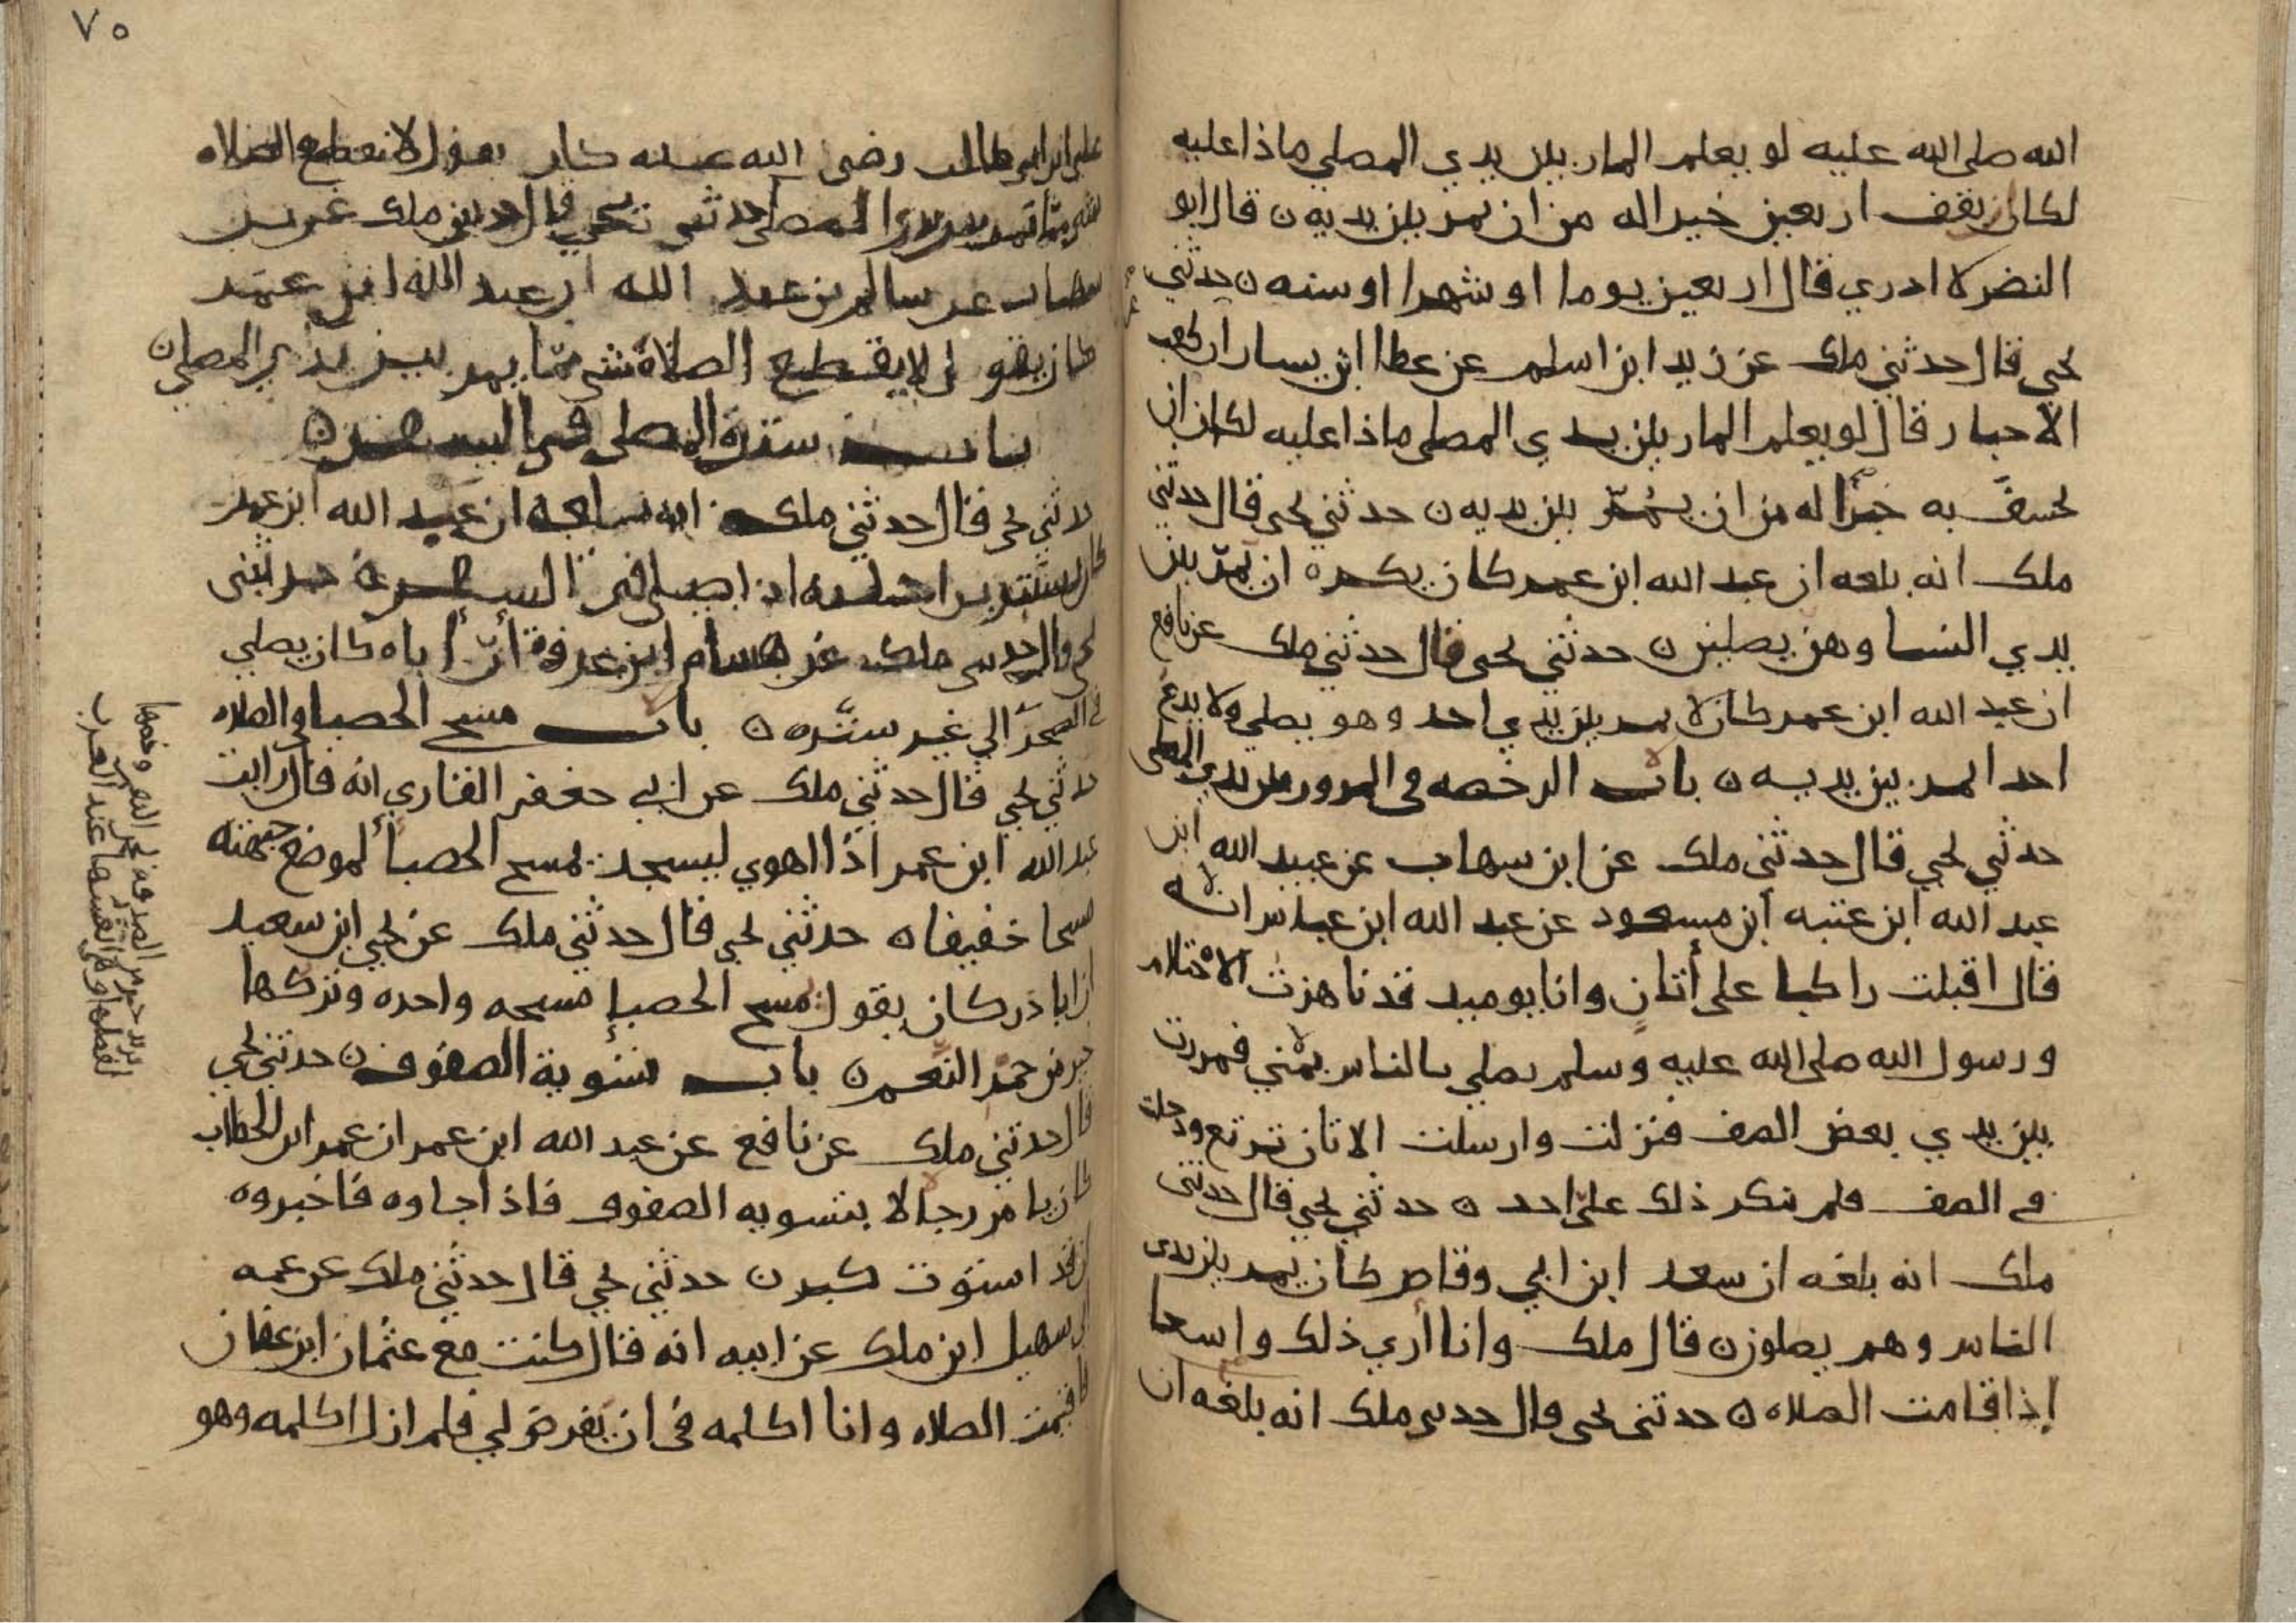 الله صلى الله عليه لو يعلم المار بين يدي المصلي ماذا عليه
لكان يقف اربعين خير له من ان يمر بين يديه ن قال ابو
النضر لا ادري قال اربعين يوما او شهرا او سنه ن حدثني
يحيى قال حدثني ملك عن زيد ابن اسلم عن عطا ابن يسار ان كعب
الاحبار قال لو يعلم المار بين يدي المصلي ماذا عليه لكان ان
يخسف به خيرا له من ان يمر بين يديه ن حدثني يحيى قال حدثني
ملك انه بلغه ان عبد الله ابن عمر كان يكره ان يمر بين
يدي النسا وهن يصلين ن حدثني يحيى قال حدثني ملك عن نافع
ان عبد الله ابن عمر كان لا يمر بين يدي احد وهو يصلي ولا يدع
احد يمر بين يديه ن باب الرخصه في المرور بين يدي المصلي
حدثني يحيى قال حدثني ملك عن ابن شهاب عن عبيد الله ابن
عبد الله ابن عتبه ابن مسعود عن عبد الله ابن عباس انه
قال اقبلت راكبا على أتان وانا يوميد قد ناهزت الاحتلام
ورسول الله صلى الله عليه وسلم يصلي بالناس بمنى فمررت
بين يدي بعض الصف فنزلت وارسلت الاتان ترتع ودخلت
في الصف فلم ينكر ذلك علي احد ن حدثني يحيى قال حدثني
ملك انه بلغه ان سعد ابن ابي وقاص كان يمر بين يدي
الناس وهم يصلون ن قال ملك وانا أري ذلك واسعا
إذا قامت الصلاه ن حدثني يحيى قال حدثني ملك انه بلغه ان
٧٥
علي ابن ابي طالب رضي الله عنه كان يقول لا يقطع الصلاه
شي مما يمر بين يدي المصلي حدثني يحيى قال حدثني ملك عن ابن
شهاب عن سالم بن عبد الله ان عبد الله ابن عمر
كان يقول لا يقطع الصلاة شي مما يمر بين يدي المصلي ن
باب سترة المصلي في السفر ن
حدثني يحيى قال حدثني ملك انه بلغه ان عبد الله ابن عمر
كان يستتر براحلته اذا صلى في السفر ن حدثني
يحيى قال حدثني ملك عن هشام ابن عروة أن أباه كان يصلي
في الصحرا الي غير سترة ن باب مسح الحصبا في الصلاه
حدثني يحيى قال حدثني ملك عن ابي جعفر القاري انه قال رايت
عبد الله ابن عمر اذا اهوي ليسجد يمسح الحصبا لموضع جبهته
مسحا خفيفا ن حدثني يحيى قال حدثني ملك عن يحيى ابن سعيد
ان ابا ذر كان يقول مسح الحصبا مسحه واحده وتركها
خير من حمر النعم ن باب تسوية الصفوف ن حدثني يحيى
قال حدثني ملك عن نافع عن عبد الله ابن عمر ان عمر ابن الخطاب
كان يامر رجالا بتسويه الصفوف فاذا جاوه فاخبروه
ان قد استوت كبر ن حدثني يحيى قال حدثني ملك عن عمه
ابي سهيل ابن ملك عن ابيه انه قال كنت مع عثمان ابن عفان
فاقيمت الصلاه وانا اكلمه في ان يفرض لي فلم ازل اكلمه وهو